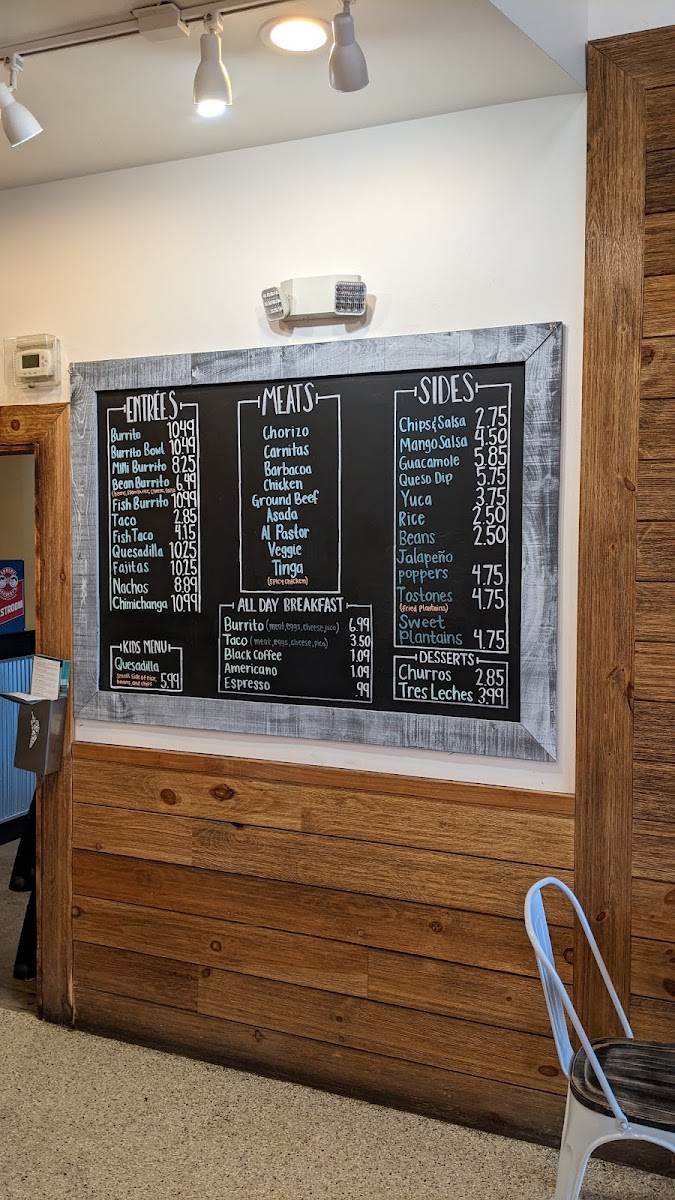 ENTRÉES
Burrito 10.49
Burrito Bowl 10.49
Mini Burrito 8.25
Bean Burrito 6.49
Fish Burrito 10.99
Taco 2.85
Fish Taco 4.15
Quesadilla 10.25
Fajitas 10.25
Nachos 8.89
Chimichanga 10.99
KIDS MENU
Quesadilla
small side of rice,
beans, and chips 5.99
MEATS
Chorizo
Carnitas
Barbacoa
Chicken
Ground Beef
Asada
Al Pastor
Veggie
Tinga
(spicy chicken)
ALL DAY BREAKFAST
Burrito (meat, eggs, cheese, pico) 6.99
Taco (meat, eggs, cheese, pico) 3.50
Black Coffee 1.09
Americano 1.09
Espresso .99
SIDES
Chips & Salsa 2.75
Mango Salsa 4.50
Guacamole 5.85
Queso Dip 5.75
Yuca 3.75
Rice 2.50
Beans 2.50
Jalapeño
poppers 4.75
Tostones 4.75
(fried plantains)
Sweet
Plantains 4.75
DESSERTS
Churros 2.85
Tres Leches 3.99